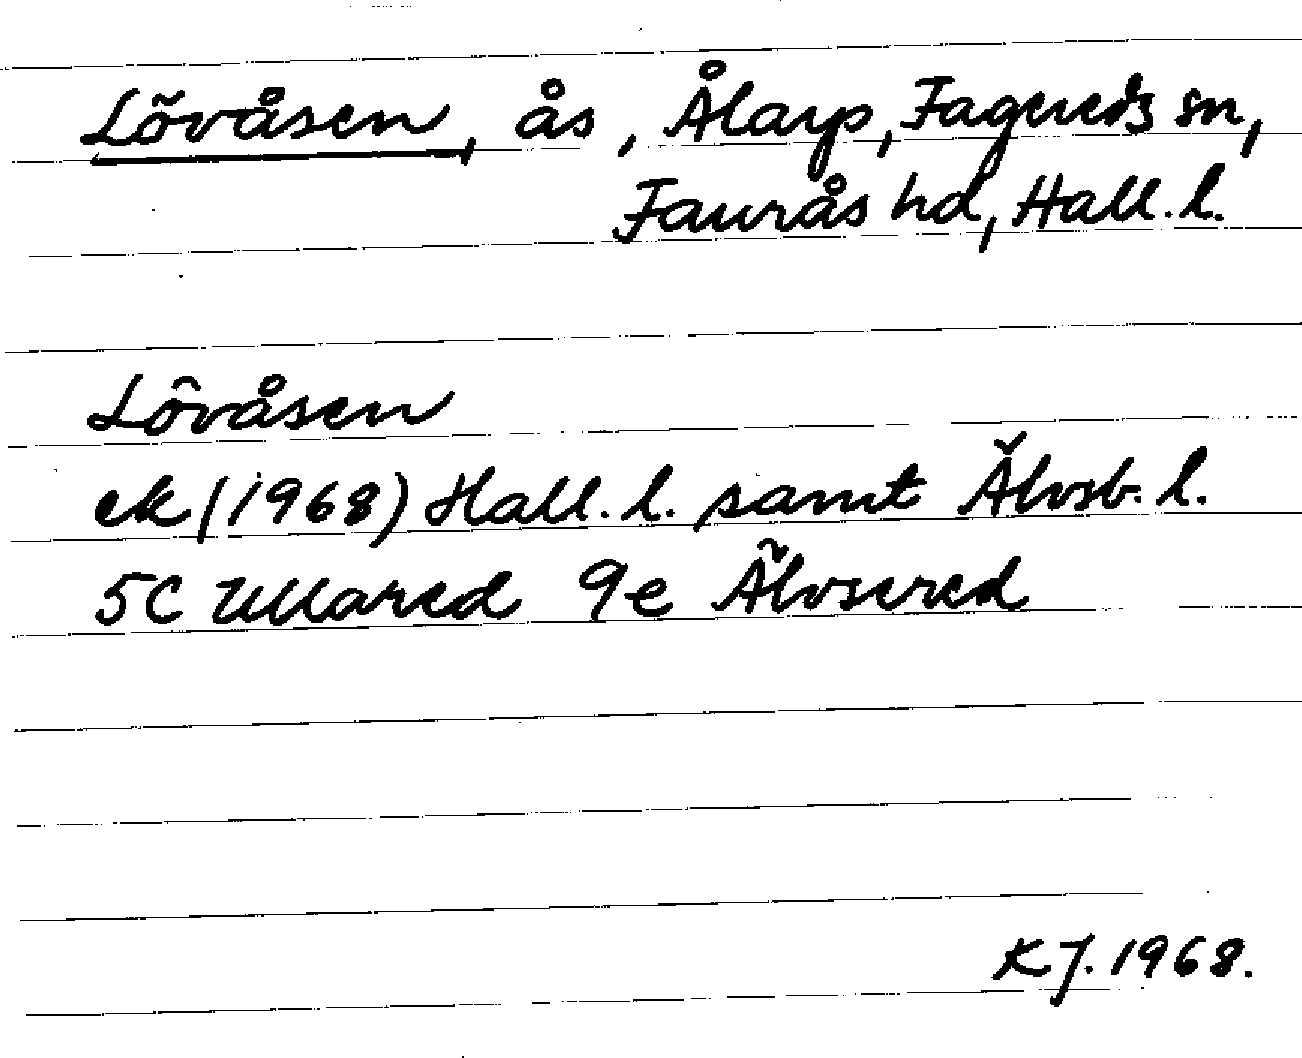 Lövåsen, ås, Ålarp, Fagereds sn,
Faurås hd, Hall. l.
Lövåsen
ek (1968) Hall. l. samt Älvsb. l.
5C Ullared 9e Älvsered
KJ. 1968.